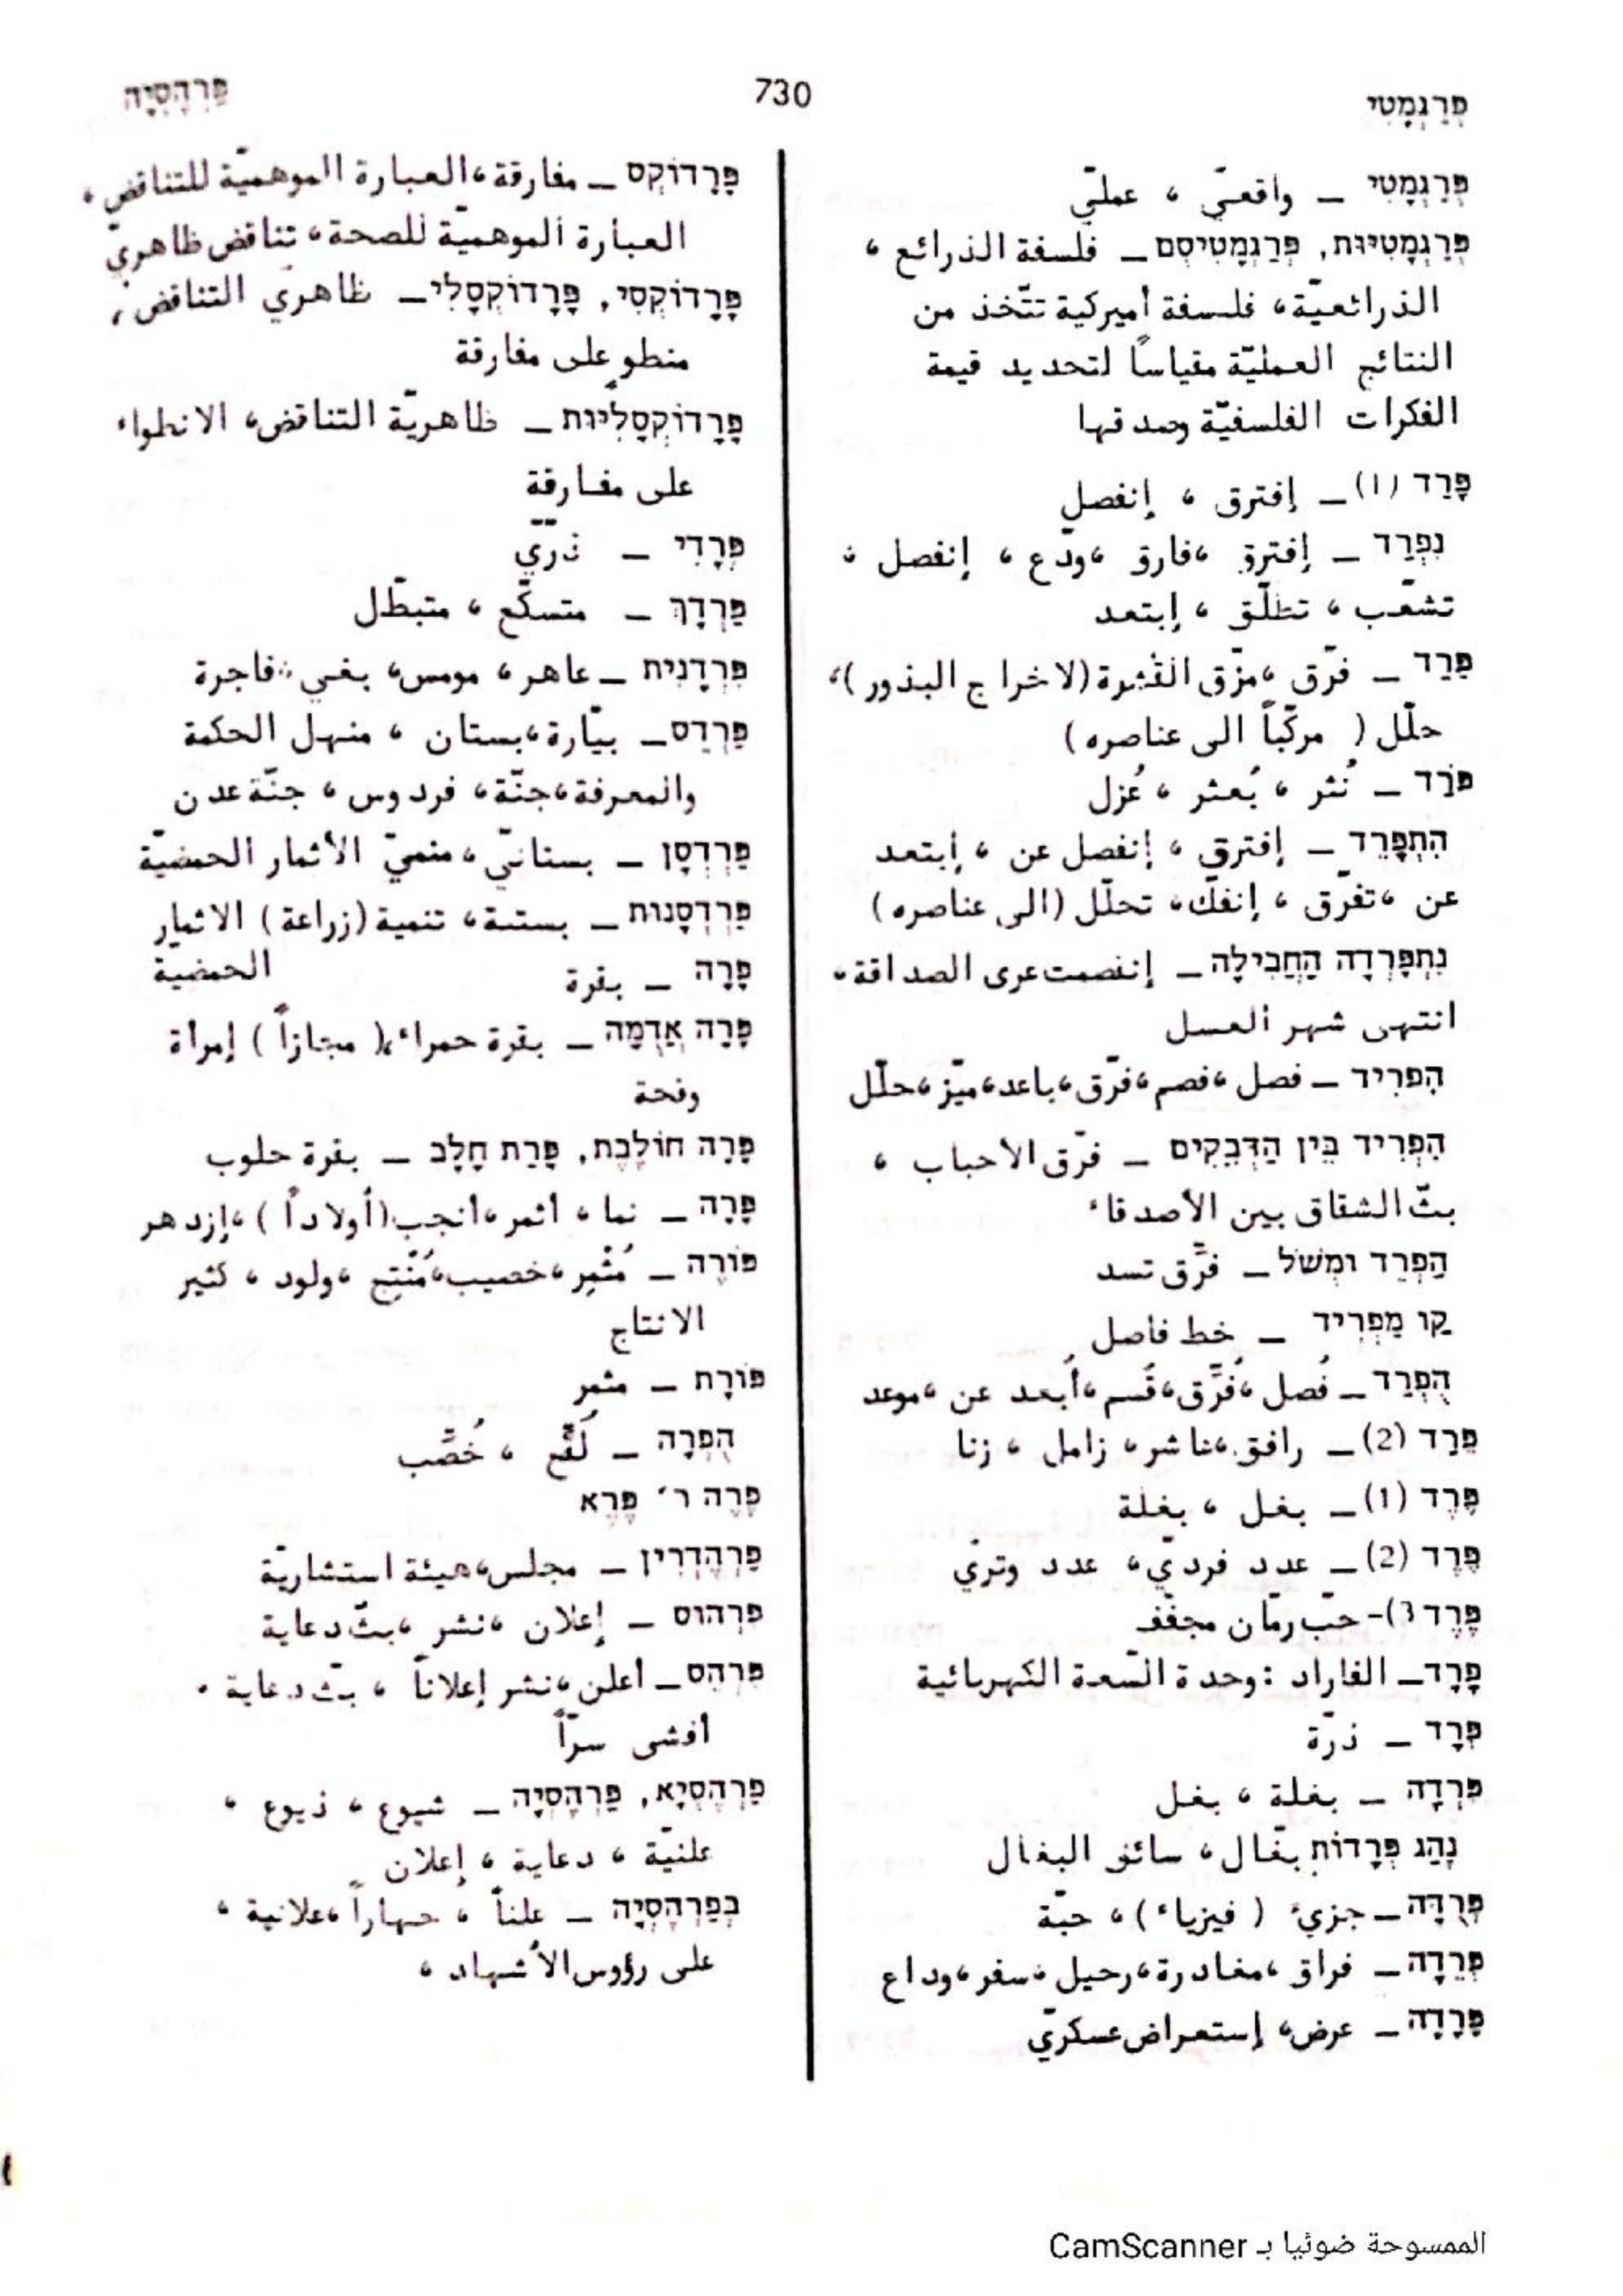 פְּרַגְמָטִי
730
פַּרְהֶסְיָה
פְּרַגְמָטִי _ واقعيّ ، عمليّ
פְּרַגְמָטִיוּת, פְּרַגְמָטִיסְם _ فلسفة الذرائع ،
الذرائعيّة، فلسفة أميركية تتّخذ من
النتائج العمليّة مقياساً لتحديد قيمة
الفكرات الفلسفيّة وصدقها
פָּרַד (1) _ إفترق ، إنفصل
נִפְרַד _ إفترق ،فارق ،ودّع ، إنفصل ،
تشعّب ، تطلّق ، إبتعد
פֵּרַד _ فرّق ،مزّق القشرة (لاخراج البذور)،
حلّل ( مركّباً الى عناصره )
פֹּרַד _ نُثر ، بُعثر ، عُزل
הִתְפָּרֵד _ إفترق ، إنفصل عن ، إبتعد
عن ،تفرّق ، إنفكّ، تحلّل (الى عناصره)
נִתְפָּרְדָה הַחֲבִילָה _ إنفصمت عرى الصداقة،
انتهى شهر العسل
הִפְרִיד _ فصل ،فصم ،فرّق ،باعد ،ميّز ،حلّل
הִפְרִיד בֵּין הַדְּבֵקִים _ فرّق الاحباب ،
بثّ الشقاق بين الأصدقاء
הַפְרֵד וּמְשֹׁל _ فرِّق تسد
קַו מַפְרִיד _ خط فاصل
הֻפְרַד _ فُصل ،فُرِّق ،قُسم ،أُبعد عن ،موعد
פֵּרַד (2) _ رافق ،عاشر، زامل ، زنا
פֶּרֶד (1) _ بغل ، بغلة
פֶּרֶד (2) _ عدد فرديّ، عدد وتريّ
פֶּרֶד (3- حبّ رمّان مجفّف
פָרָד _ الفاراد : وحدة السّعة الكهربائية
פְּרָד _ ذرّة
פִּרְדָה _ بغلة ، بغل
נָהַג פְּרָדוֹת بغّال، سائق البغال
פְּרֻדָּה _ جزيء ( فيزياء )، حبّة
פְּרֵדָה _ فراق ،مغادرة،رحيل ،سفر،وداع
פָּרָדָה _ عرض، إستعراض عسكريّ
פָּרָדוֹקְס _ مفارقة،العبارة الموهميّة للتناقض،
العبارة الموهميّة للصحة، تناقض ظاهريّ
פָּרָדוֹקְסִי, פָּרָדוֹקְסָלִי _ ظاهريّ التناقض،
منطوٍ على مفارقة
פָּרָדוֹקְסָלִיּוּת _ ظاهريّة التناقض، الانطواء
على مفارقة
פְּרָדִי _ ذرّيّ
פַּרְדָּךְ _ متسكّع ، متبطّل
פִּרְדָנִית _ عاهر، مومس، بغي، فاجرة
פַּרְדֵּס _ بيّارة،بستان ، منهل الحكمة
والمعرفة،جنّة، فردوس ، جنّة عدن
פַּרְדְּסָן _ بستانيّ ، منميّ الأثمار الحمضيّة
פַּרְדְּסָנוּת _ بستنة، تنمية (زراعة) الاثمار
الحمضيّة
פָּרָה _ بقرة
פָּרָה אֲדֻמָּה _ بقرة حمراء، ( مجازاً ) إمرأة
وقحة
פָּרָה חוֹלֶבֶת, פָּרַת חָלָב _ بقرة حلوب
פָּרָה _ نما ، أثمر ،أنجب (أولاداً ) ،إزدهر
פּוֹרֶה _ مُثْمِر،خصيب،مُنْتِج ،ولود ، كثير
الانتاج
פּוֹרָת _ مثمر
הֻפְרָה _ لُقِّح ، خُصِّب
פֶּרֶה ר׳ פֶּרֶא
פַּרְהֶדְרִין _ مجلس،هيئة استشاريّة
פִּרְהוּס _ إعلان ،نشر ،بثّ دعاية
פִּרְהֵס _ أعلن ،نشر إعلاناً ، بثّ دعاية ،
أفشى سرّاً
פַּרְהֶסְיָא, פַּרְהֶסְיָה _ شيوع ، ذيوع ،
علنيّة ، دعاية ، إعلان
בְּפַרְהֶסְיָה _ علناً ، جهاراً ،علانية ،
على رؤوس الأشهاد ،
الممسوحة ضوئيا بـ CamScanner